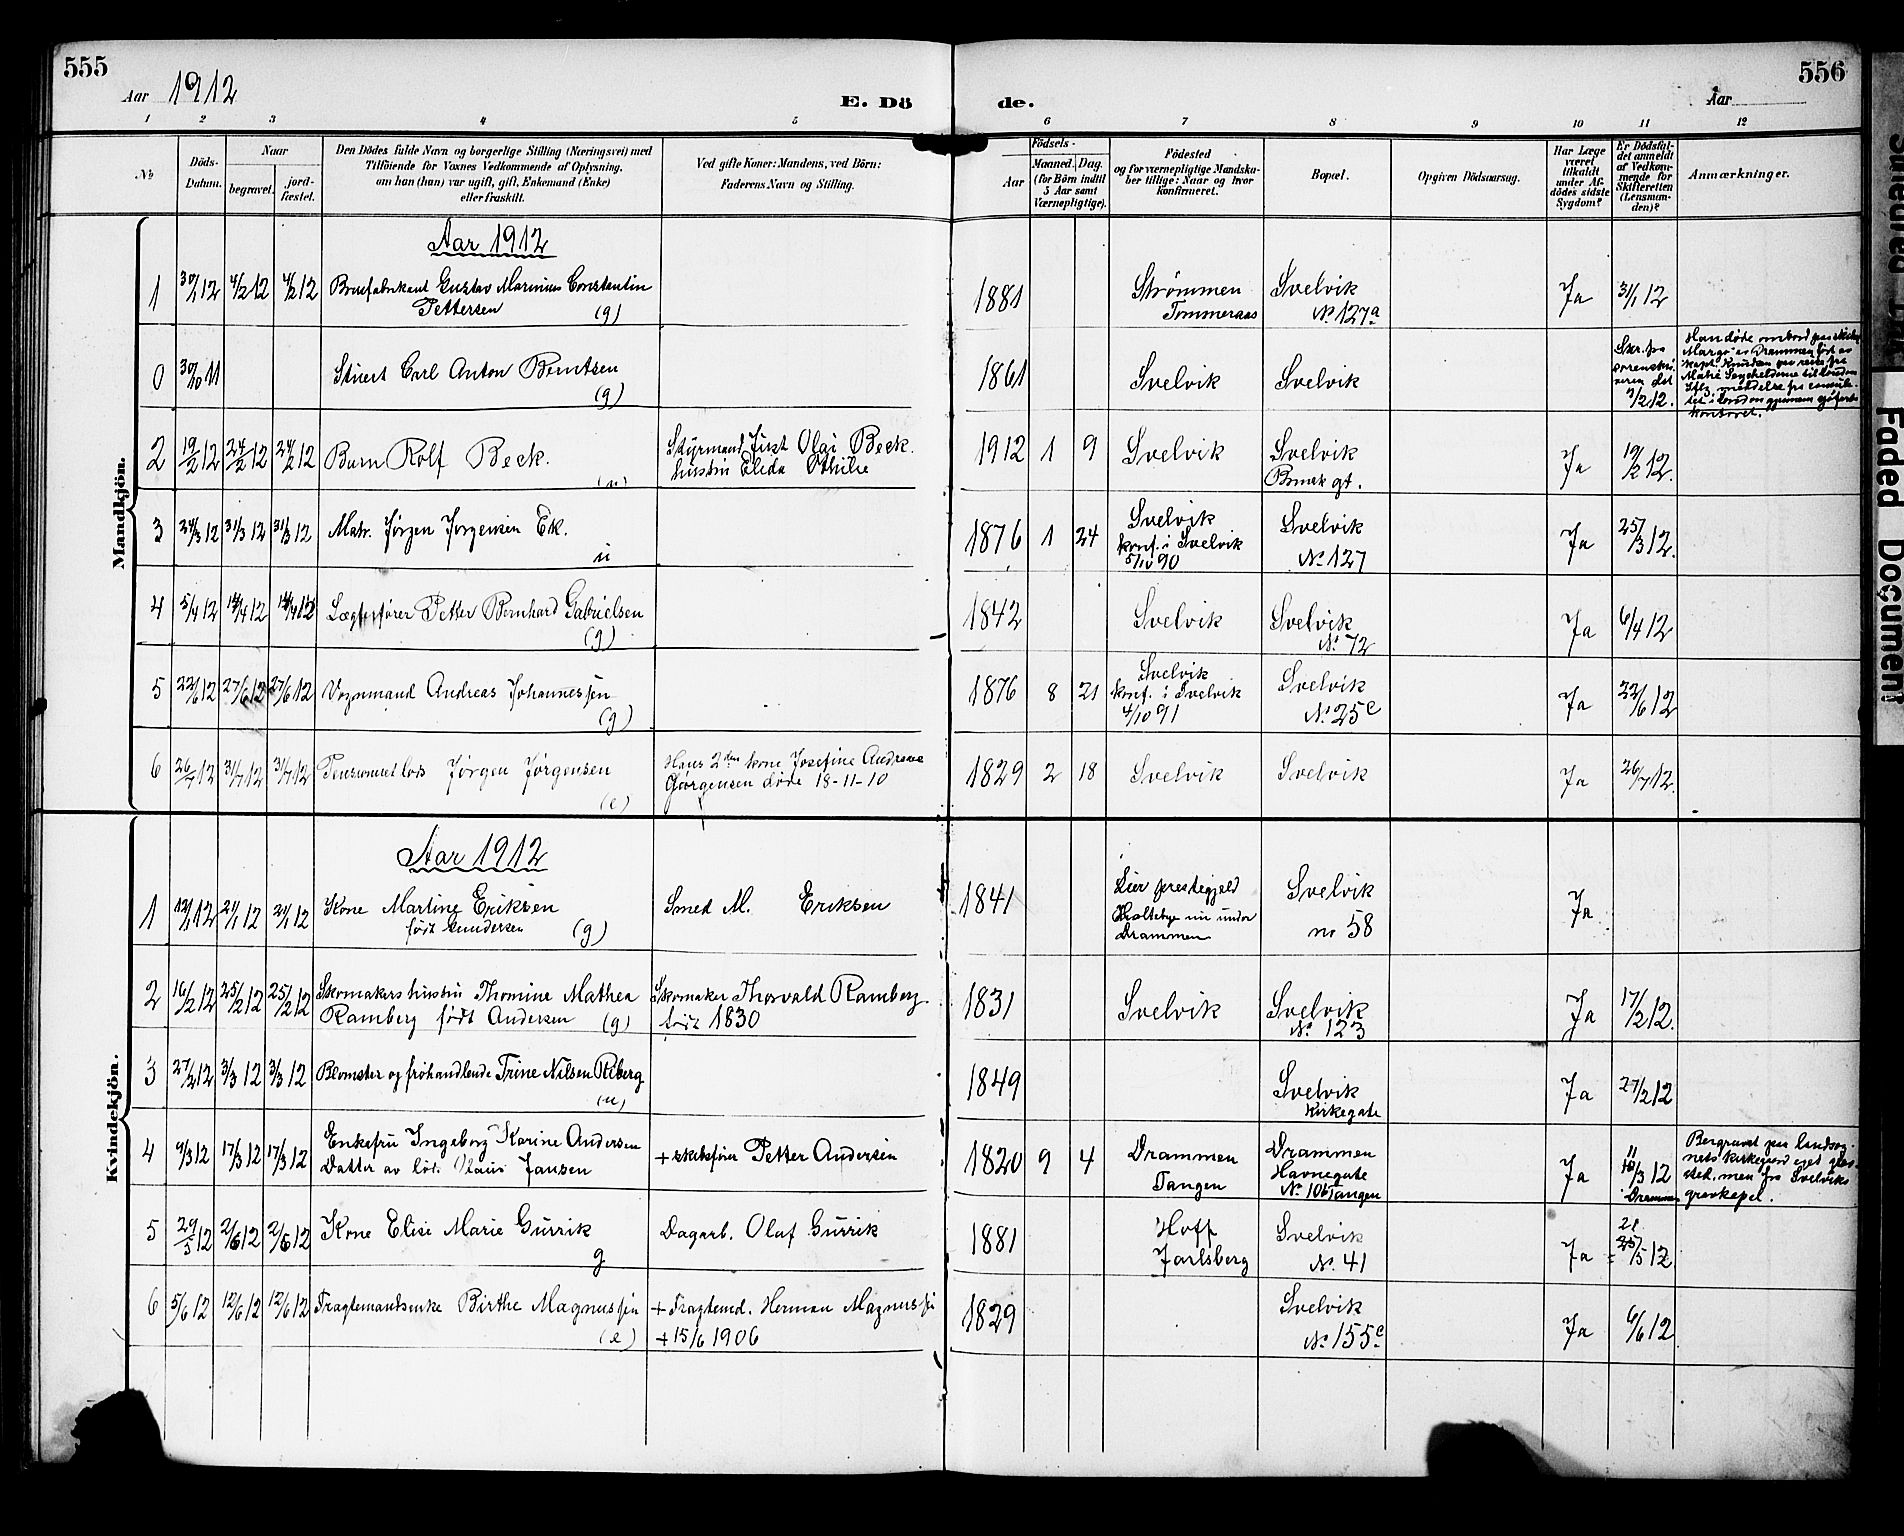 555
556
Aar 1912
E. Dö
de.
Aar
1 2 3 4 5 6 7 8 9 10 11 12
No
Döds-
Datum.
Naar
begravet.
jord-
fæstet.
Den Dödes fulde Navn og borgerlige Stilling (Næringsvei) med
Tilföiende for Voxnes Vedkommende af Oplysning,
om han (hun) var ugift, gift, Enkemand (Enke)
eller fraskilt.
Ved gifte Koner: Mandens, ved Börn:
Faderens Navn og Stilling.
Födsels-
Aar
Maaned. Dag.
(for Börn indtil
5 Aar samt
Værnepligtige).
Födested
og for værnepligtige Mandska-
ber tillige: Naar og hvor
konfirmeret.
Bopæl.
Opgiven Dödsaarsag.
Har Læge
været
tilkaldt
under Af-
dödes sidste
Sygdom?
Er Dödsfal-
det anmeldt
af Vedkom-
mende for
Skifteretten
(Lensman-
den)?
Anmærkninger.
Mandkjön.
Aar 1912
1 30/1 12 4/2 12 4/2 12 Brusfabrikant Gustav Marinius Constantin
Pettersen (g)
1881 Strømmen
Tømmeraas
Svelvik
No 127a
Ja 31/1 12
0 30/10 11 Stuert Carl Anton Berntsen
(g)
1861 Svelvik Svelvik
Skr. fra
sorenskri-
veren dat
9/2 12.
Han døde ombord paa
"Margo" av Drammen ført av
kapt. Knudsen paa reise fra
Mahé Seychellerne til London
Iflg. meddelse fra consula-
tet i London gjennem sjøfarts
kontoret.
2 19/2 12 24/2 12 24/2 12 Barn Rolf Beck.
(u)
Styrmand Just Olaf Beck.
hustru Elida Othilie
1912 1 9 Svelvik Svelvik
Bruk gt.
Ja 19/2 12.
3 24/3 12 31/3 12 31/3 12 Matr. Jørgen Jørgensen Ek.
u
1876 1 24 Svelvik
konf. i Svelvik
5/10 90
Svelvik
No 127
Ja 25/3 12.
4 5/4 12 14/4 12 14/4 12 Lægterfører Petter Bernhard Gabrielsen
(g)
1842 Svelvik Svelvik
No 72
Ja 6/4 12
5 22/6 12 27/6 12 27/6 12 Vognmand Andreas Johannessen
(g)
1876 8 21 Svelvik
konf. i Svelvik
4/10 91
Svelvik
No 25c
Ja 22/6 12
6 26/7 12 31/7 12 31/7 12 Pensioneret lods Jørgen Jørgensen
(e)
Hans 2den kone Josefine Andrena
Gjørgensen døde 18-11-10
1829 2 18 Svelvik Svelvik Ja 26/7 12.
Kvindekjön.
Aar 1912
1 12/1 12 21/1 12 21/1 12 Kone Martine Eriksen
født Gundersen (g)
Smed M. Eriksen
1841 Lier prestegjeld
nu under
Drammen
Svelvik
no 58
Ja
2 16/2 12 25/2 12 25/2 12 Skomakers hustru Thomine Mathea
Ramberg født Andersen (g)
Skomaker Thorvald Ramberg
født 1830
1831 Svelvik Svelvik
No 123
Ja 17/2 12.
3 27/2 12 3/3 12 3/3 12 Blomster og frøhandlende Trine Nilsen Riberg
(u)
1849 Svelvik
Kirkegate
Ja 27/2 12
4 9/3 12 17/3 12 17/3 12 Enkefru Ingeborg Karine Andersen
Datter av lods Klaus Jansen
+ skibsfører Petter Andersen
1820 9 4 Drammen
Tangen
Drammen
Havnegate
No 106 Tangen
Ja 11/3 12
i Drammen
Begravet paa landsog-
nets kirkegaard eget grav-
sted, men fra Svelviks
gravkapel.
5 29/5 12 2/6 12 2/6 12 Kone Elise Marie Gurrik
g
Dagarb. Olaf Gurrik
1881 Hoff
Jarlsberg
Svelvik
No 41
Ja 28/5 12
6 5/6 12 12/6 12 12/6 12 Fragtemandsenke Birthe Magnussen
(e)
+ Fragtemd. Herman Magnussen
+ 15/6 1906
1829 Svelvik
No 155c
Ja 6/6 12
Faded Document